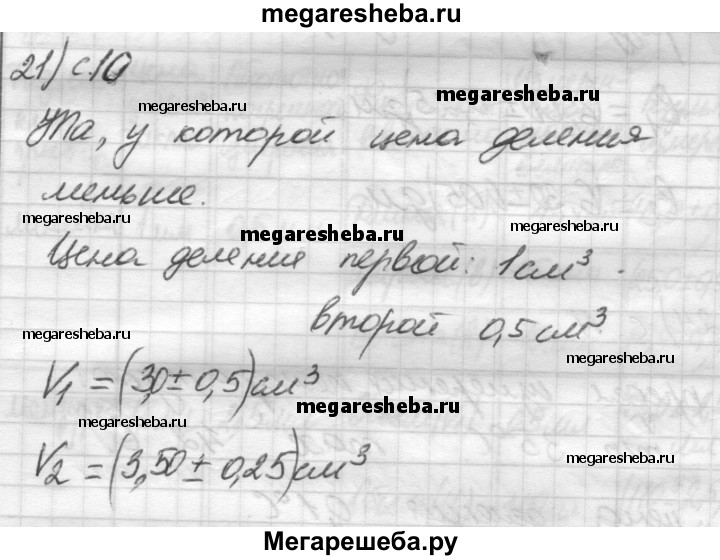 megaresheba.ru
21) с.10
megaresheba.ru
megaresheba.ru
Та, у которой цена деления
меньше.
megaresheba.ru
megaresheba.ru
megaresheba.ru
Цена деления первой: 1 см³.
второй 0,5 см³
megaresheba.ru
megaresheba.ru
V₁ = (3,0 ± 0,5) см³
megaresheba.ru
megaresheba.ru
V₂ = (3,50 ± 0,25) см³
megaresheba.ru
Мегарешеба.ру